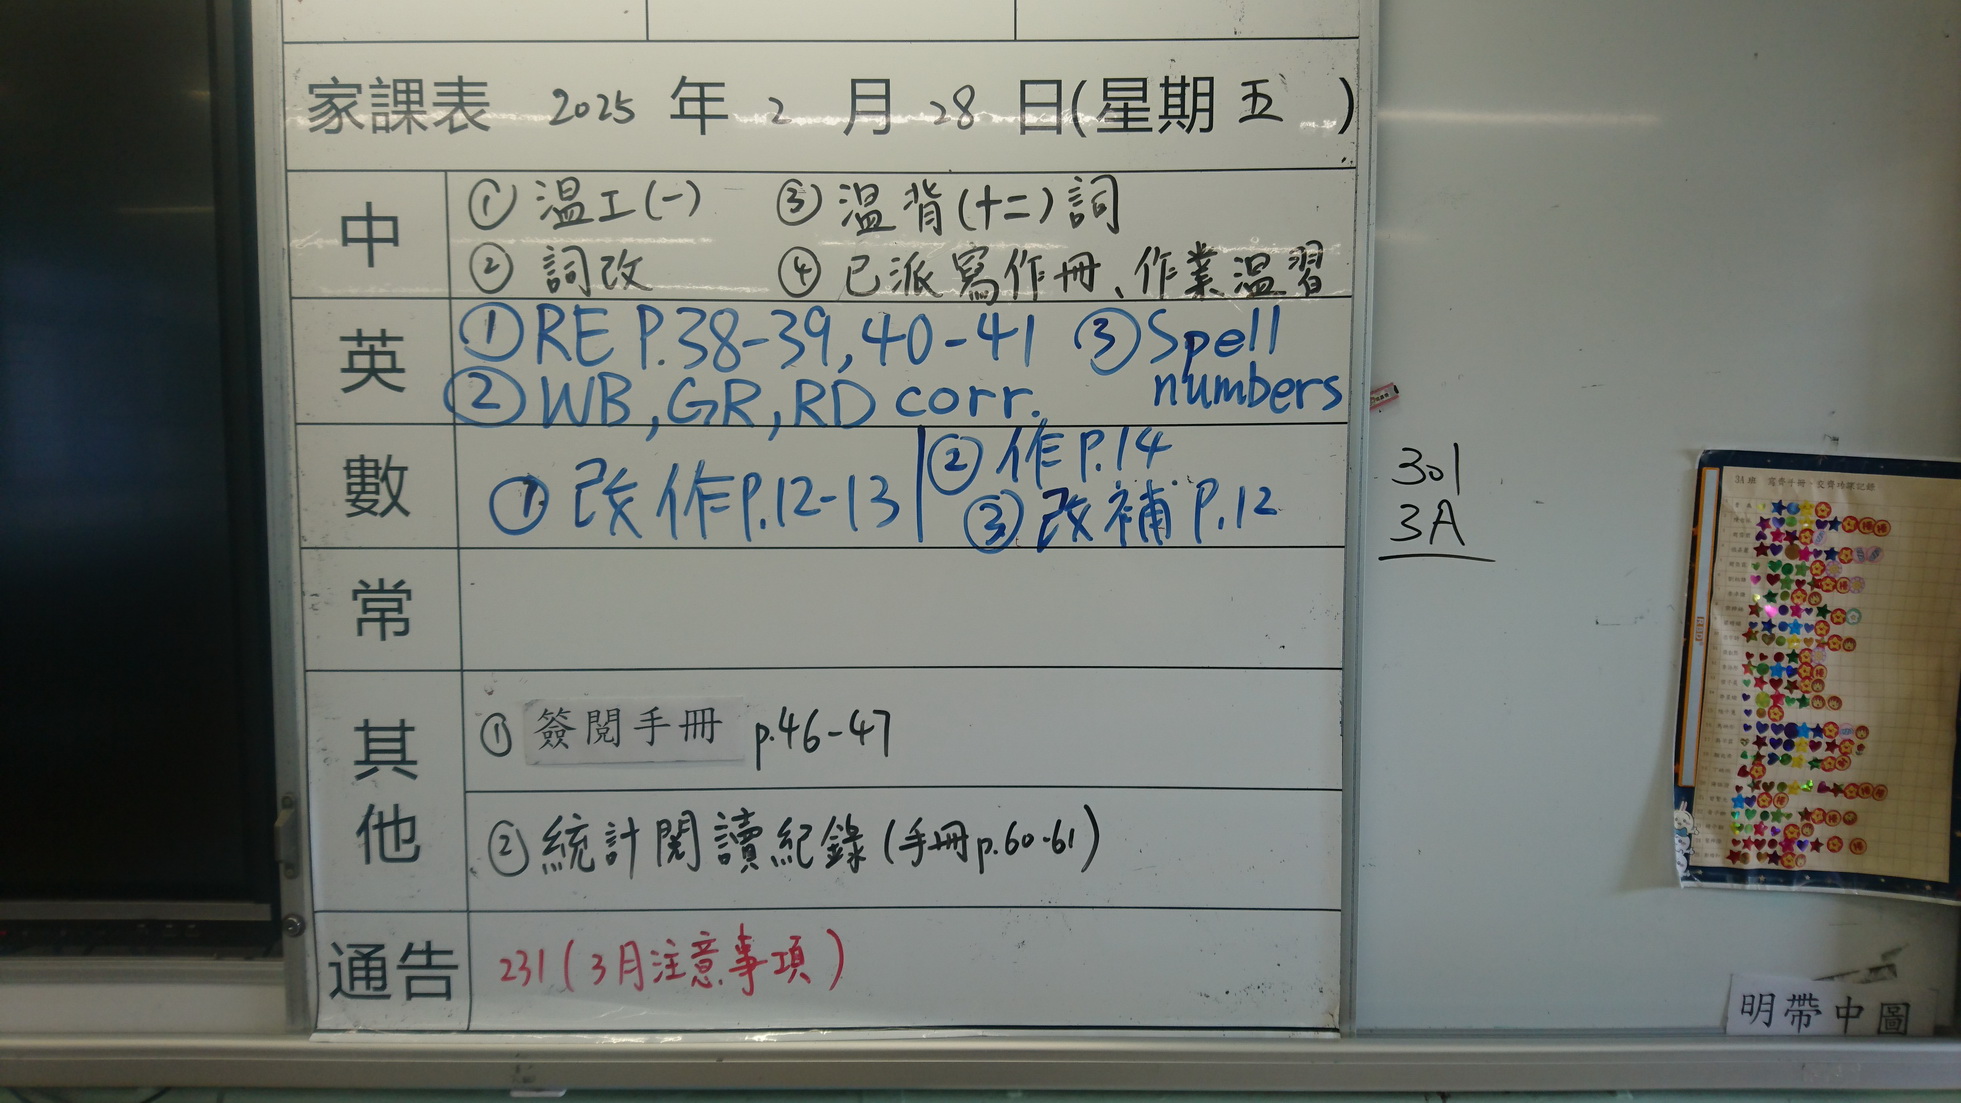 家課表 2025 年 2 月 28 日(星期五)
中
① 温工(一) ③ 温背(十二)詞
② 詞改 ④ 已派寫作冊、作業温習
英
① RE P.38-39, 40-41 ③ Spell numbers
② WB, GR, RD corr.
數
① 改作P.12-13 ② 作P.14
③ 改補P.12
常
其他
① 簽閱手冊 p.46-47
② 統計閱讀紀錄(手冊p.60-61)
通告
231(3月注意事項)
301
3A
明帶中圖